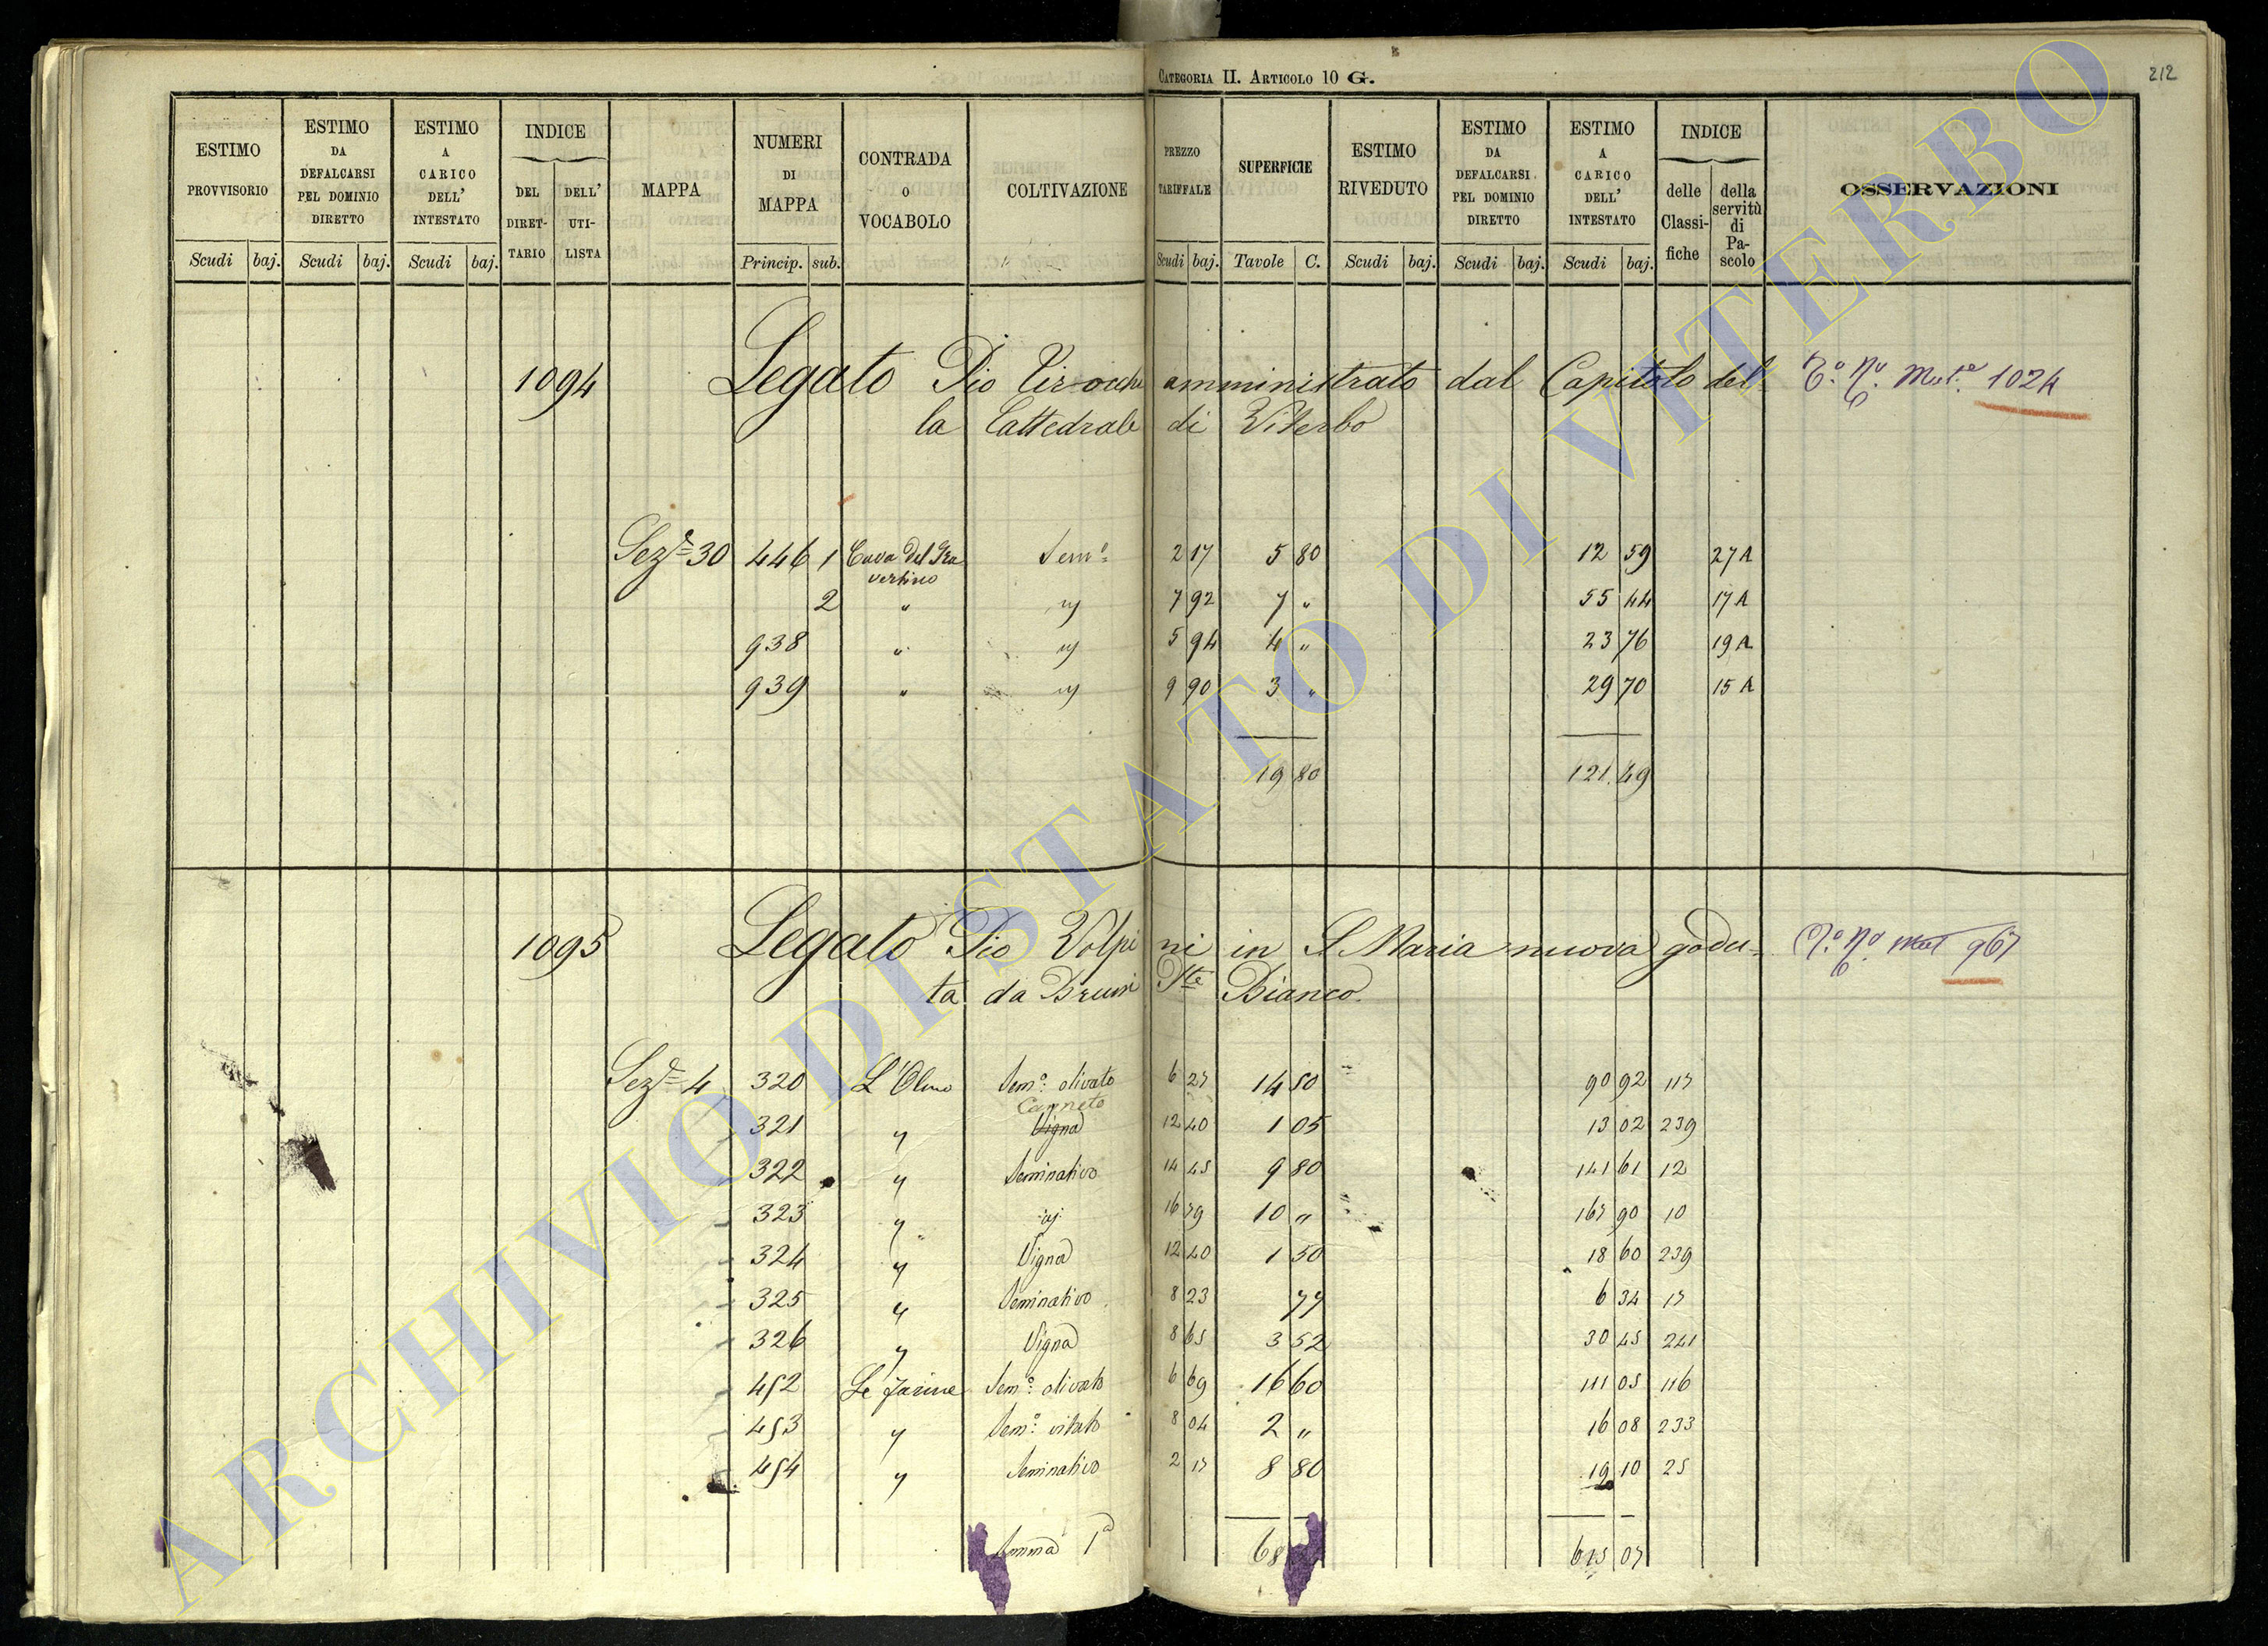 CATEGORIA II. ARTICOLO 10 G.
212
ESTIMO PROVVISORIO
ESTIMO DA DEFALCARSI PEL DOMINIO DIRETTO
ESTIMO A CARICO DELL' INTESTATO
INDICE
DEL DIRETTARIO
DELL' UTILISTA
MAPPA
NUMERI DI MAPPA
CONTRADA O VOCABOLO
COLTIVAZIONE
PREZZO TARIFFALE
SUPERFICIE
ESTIMO RIVEDUTO
ESTIMO DA DEFALCARSI PEL DOMINIO DIRETTO
ESTIMO A CARICO DELL' INTESTATO
INDICE
delle Classifiche
della servitù di Pascolo
OSSERVAZIONI
Scudi baj. Scudi baj. Scudi baj. Princip. sub. Scudi baj. Tavole C. Scudi baj. Scudi baj. Scudi baj.
1094 Legato Pio amministrato dal Capitolo del 1024
la Cattedrale di Viterbo
Sez.e 30 446 1 Cava del Tra Sem.o 2 17 5 80 12 59 27 A
vertino
2 " 7 92 7 " 55 44 17 A
938 " 5 94 4 " 23 76 19 A
939 " 9 90 3 " 29 70 15 A
19 80 121.49
1095 Legato Pio Volpi ni in S. Maria nuova godu= 967
ta da Bruni Bianco
Sez.e 4 320 L'Olmo Sem.o olivato 6 27 14 50 90 92 117
Canneto
321 " Vigna 12 40 1 05 13 02 239
322 " Seminativo 14 45 9 80 141 61 12
323 " 16 79 10 " 167 90 10
324 " Vigna 12 40 1 50 18 60 239
325 " Seminativo 8 23 77 6 34 17
326 " Vigna 8 65 3 52 30 45 241
452 Le Farine Sem.o olivato 6 69 16 60 111 05 116
453 " Sem.o vitato 8 04 2 " 16 08 233
454 " Seminativo 2 17 8 80 19 10 25
Somma 1a 68 615 07
ARCHIVIO DI STATO DI VITERBO